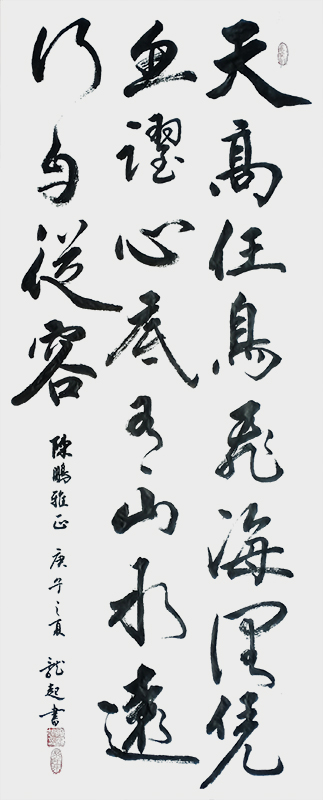 天高任鳥飛海闊凭
魚躍心底有山水遠
行自從容
陳鵬雅正 庚子之夏 龍起書